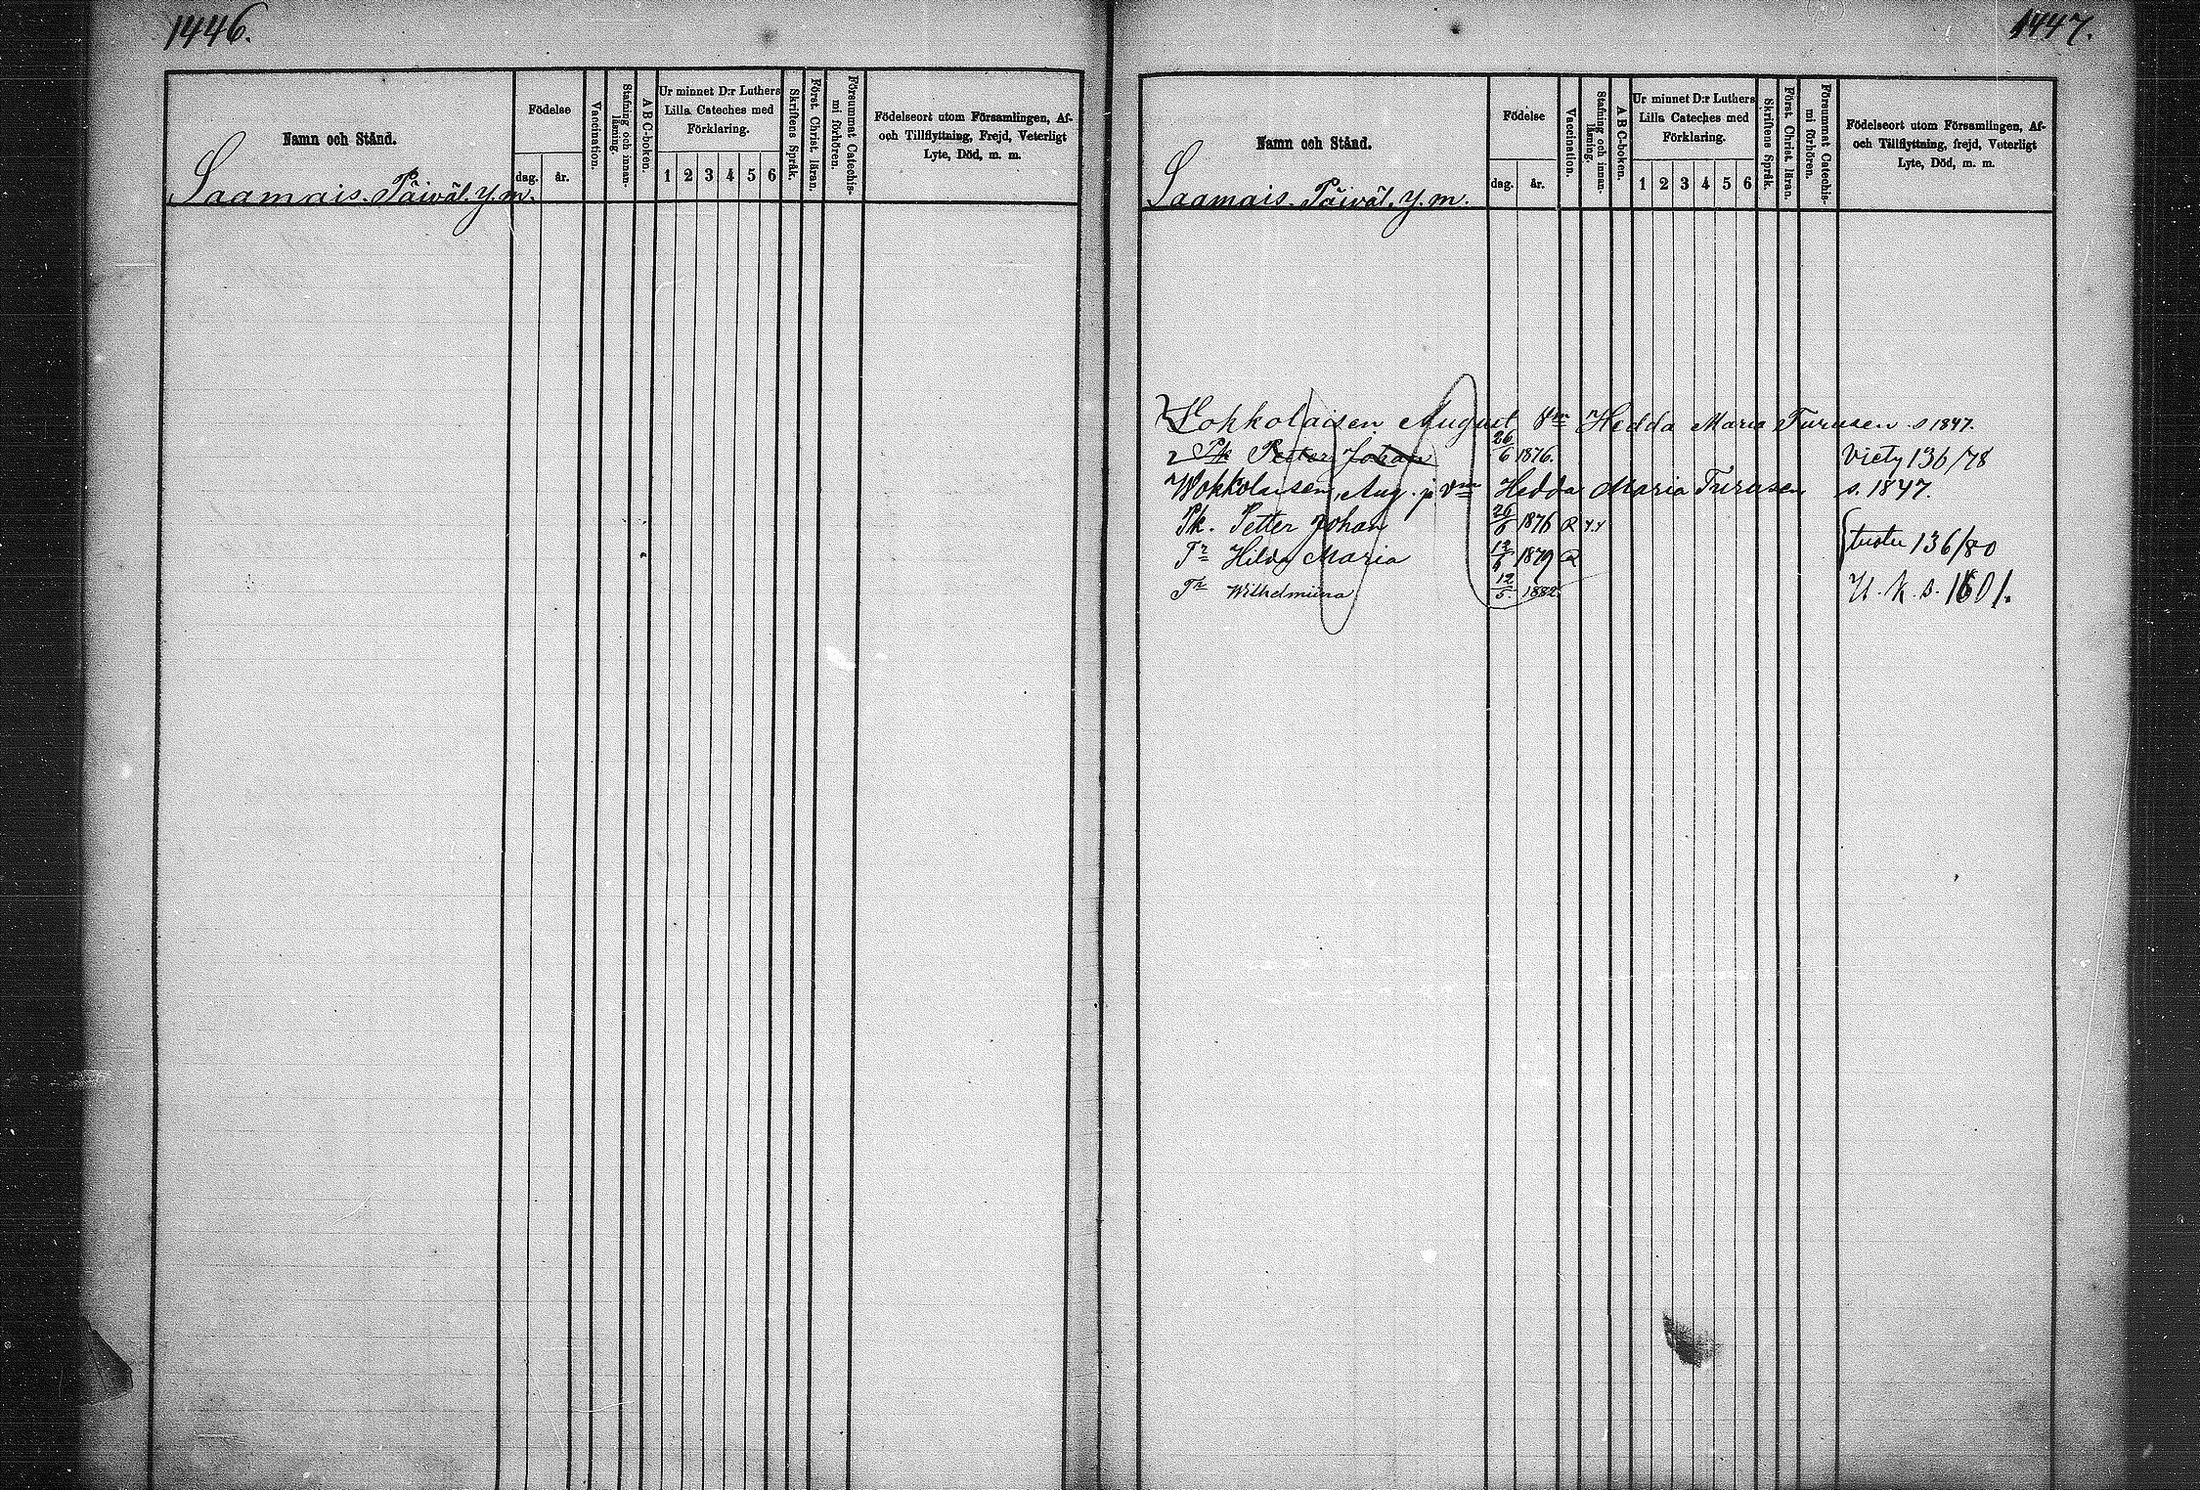 1446.
Namn och Stånd.
Födelse
dag.
år.
Vaccination.
Stafning och innan-
läsning.
A B C-boken.
Ur minnet D:r Luthers
Lilla Cateches med
Förklaring.
1 2 3 4 5 6
Skriftens Språk.
Först. Christ. läran.
Försummat Catechis-
mi förhören.
Födelseort utom Församlingen, Af-
och Tillflyttning, Frejd, Veterligt
Lyte, Död, m. m.
Saamais. Päiväl. y. m.
1447.
Namn och Stånd.
Födelse
dag.
år.
Vaccination.
Stafning och innan-
läsning.
A B C-boken.
Ur minnet D:r Luthers
Lilla Cateches med
Förklaring.
1 2 3 4 5 6
Skriftens Språk.
Först. Christ. läran.
Försummat Catechis-
mi förhören.
Födelseort utom Församlingen, Af-
och Tillflyttning, frejd, Veterligt
Lyte, Död, m. m.
Saamais. Päiväl. y. m.
Hokkolaisen August Vm Hedda Maria Turusen s 1847.
Pk Petter Johan 26/6 1876. Viety 136/78
Wokkolaisen, Aug. j. Vm Hedda Maria Turusen s. 1847.
Pk. Petter Johan 26/6 1876 R y.y
Tr Hilda Maria 12/5 1879 R tuotu 136/80
Tr Wilhelmiina 12/5. 1882. U. k. s. 1601.